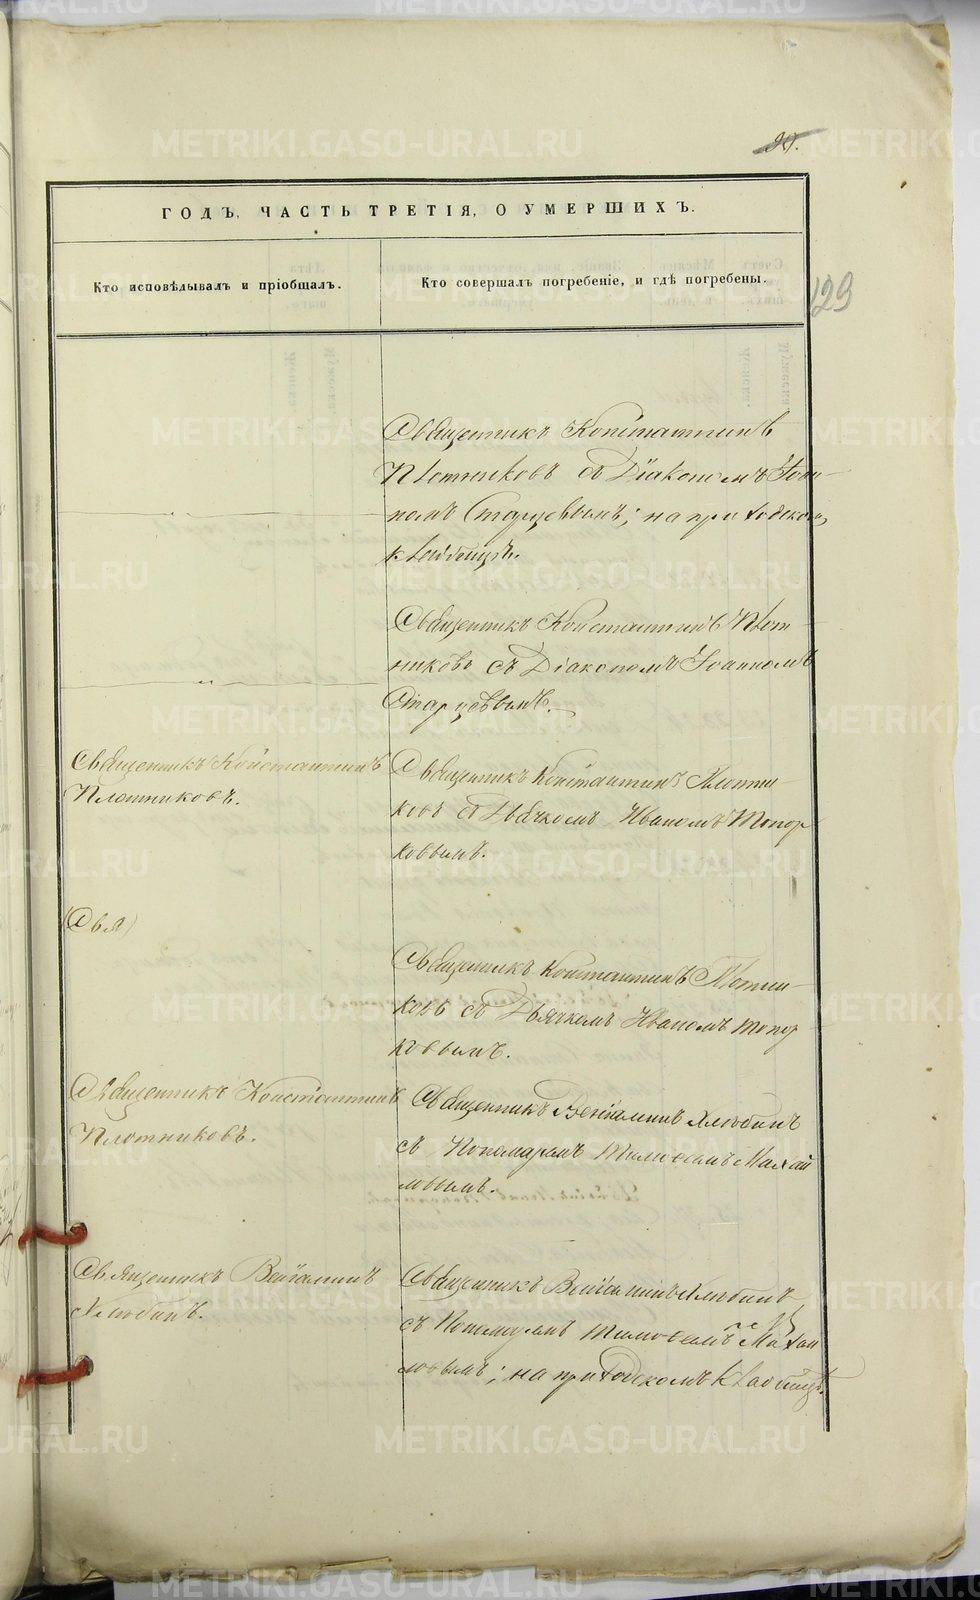 29.
ГОДЪ, ЧАСТЬ ТРЕТІЯ, О УМЕРШИХЪ.
Кто исповѣдывалъ и пріобщалъ.
Кто совершалъ погребеніе, и гдѣ погребены.
129
Священникъ Констаттинъ
Плотниковъ съ Діакономъ Іоан-
номъ Старцевымъ; на приходском
кладбищѣ.
Священникъ Константинъ Плот-
никовъ съ Діакономъ Іоанномъ
Старцовымъ.
Священникъ Константинъ
Плотниковъ.
Священникъ Константинъ Плотни-
ковъ съ Дьячкомъ Иваномъ Топор
ковымъ.
(Свя)
Священникъ Константинъ Плотни-
ковъ съ Дьячкомъ Иваномъ Топор
ковымъ.
Священникъ Константинъ
Плотниковъ.
Священникъ Веніаминъ Хлюбинъ
съ Пономаремъ Тимоѳеемъ Махай
ловымъ.
Священникъ Веніаминъ
Хлюбинъ.
Священникъ Веніаминъ Хлюбинъ
съ Пономаремъ Тимоѳеемъ Михай
ловымъ; на приходскомъ кладбищѣ.
METRIKI.GASO-URAL.RU